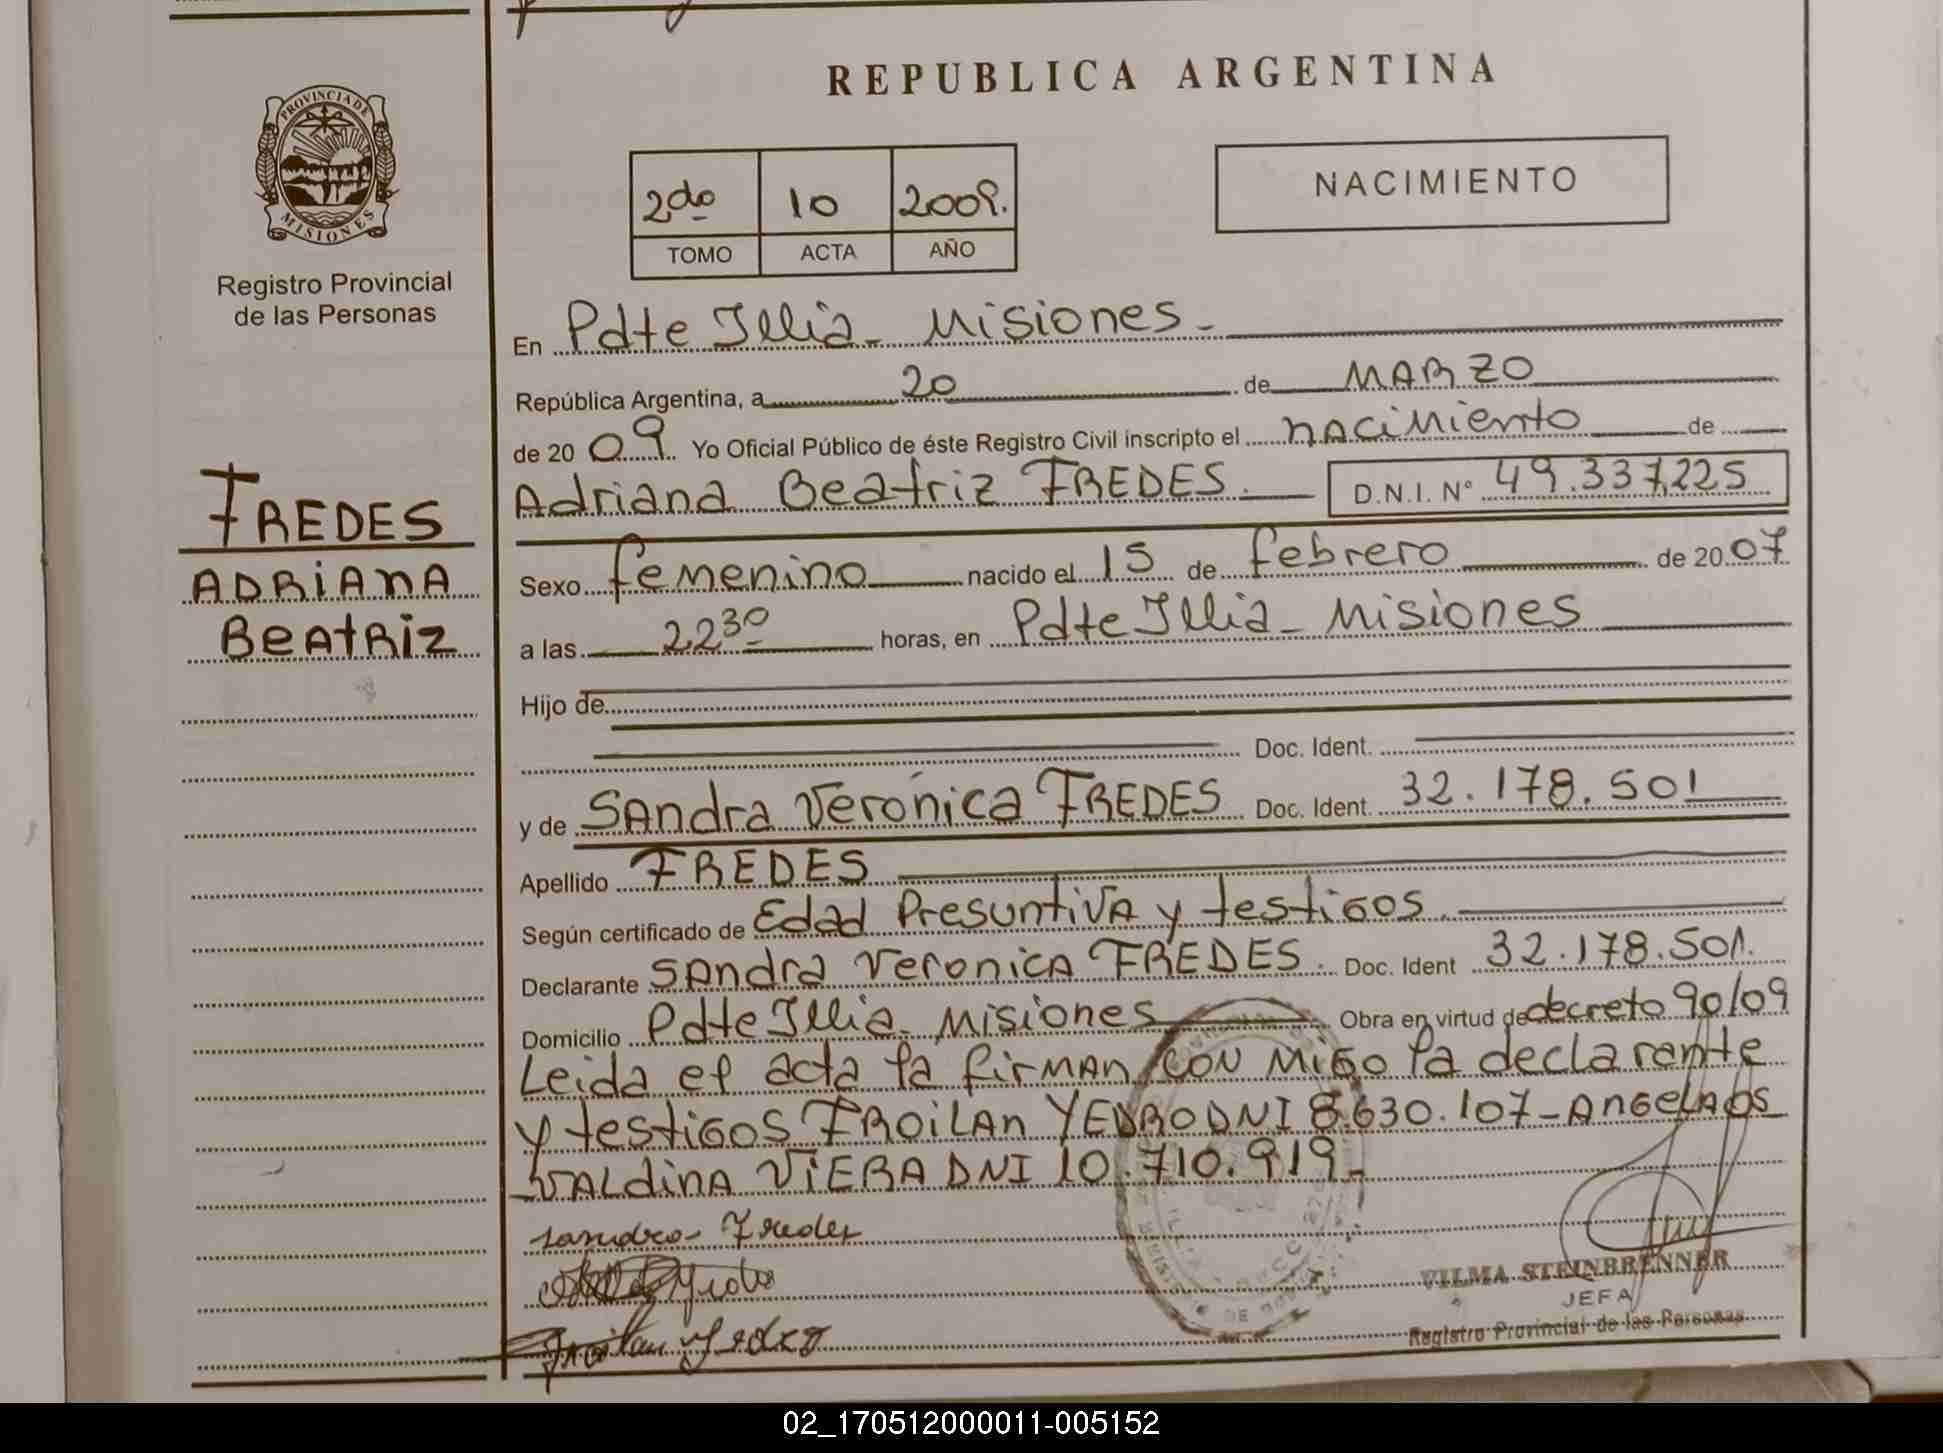 PROVINCIA DE
MISIONES
Registro Provincial
de las Personas
FREDES
ADRIANA
BEATRIZ
REPUBLICA ARGENTINA
2do 10 2009.
TOMO ACTA AÑO
NACIMIENTO
En Pdte Illia - Misiones -
República Argentina, a 20 de MARZO
de 20 09 Yo Oficial Público de éste Registro Civil inscripto el nacimiento de
Adriana Beatriz FREDES. D.N.I. N° 49.337.225
Sexo femenino nacido el 15 de febrero de 20 07
a las 22 30 horas, en Pdte Illia - Misiones
Hijo de
Doc. Ident.
y de Sandra Verónica FREDES Doc. Ident. 32.178.501
Apellido FREDES
Según certificado de Edad Presuntiva y testigos.
Declarante Sandra Veronica FREDES. Doc. Ident 32.178.501.
Domicilio Pdte Illia - Misiones Obra en virtud de decreto 90/09
Leida el acta la firman con migo la declarante
y testigos FROILAN YEDRO DNI 8.630.107 - Angela
VALDINA VIERA DNI 10.710.919.-
Sandra Fredes
Froilan Yedro
VILMA STEINBRENNER
JEFA
Registro Provincial de las Personas
02_170512000011-005152